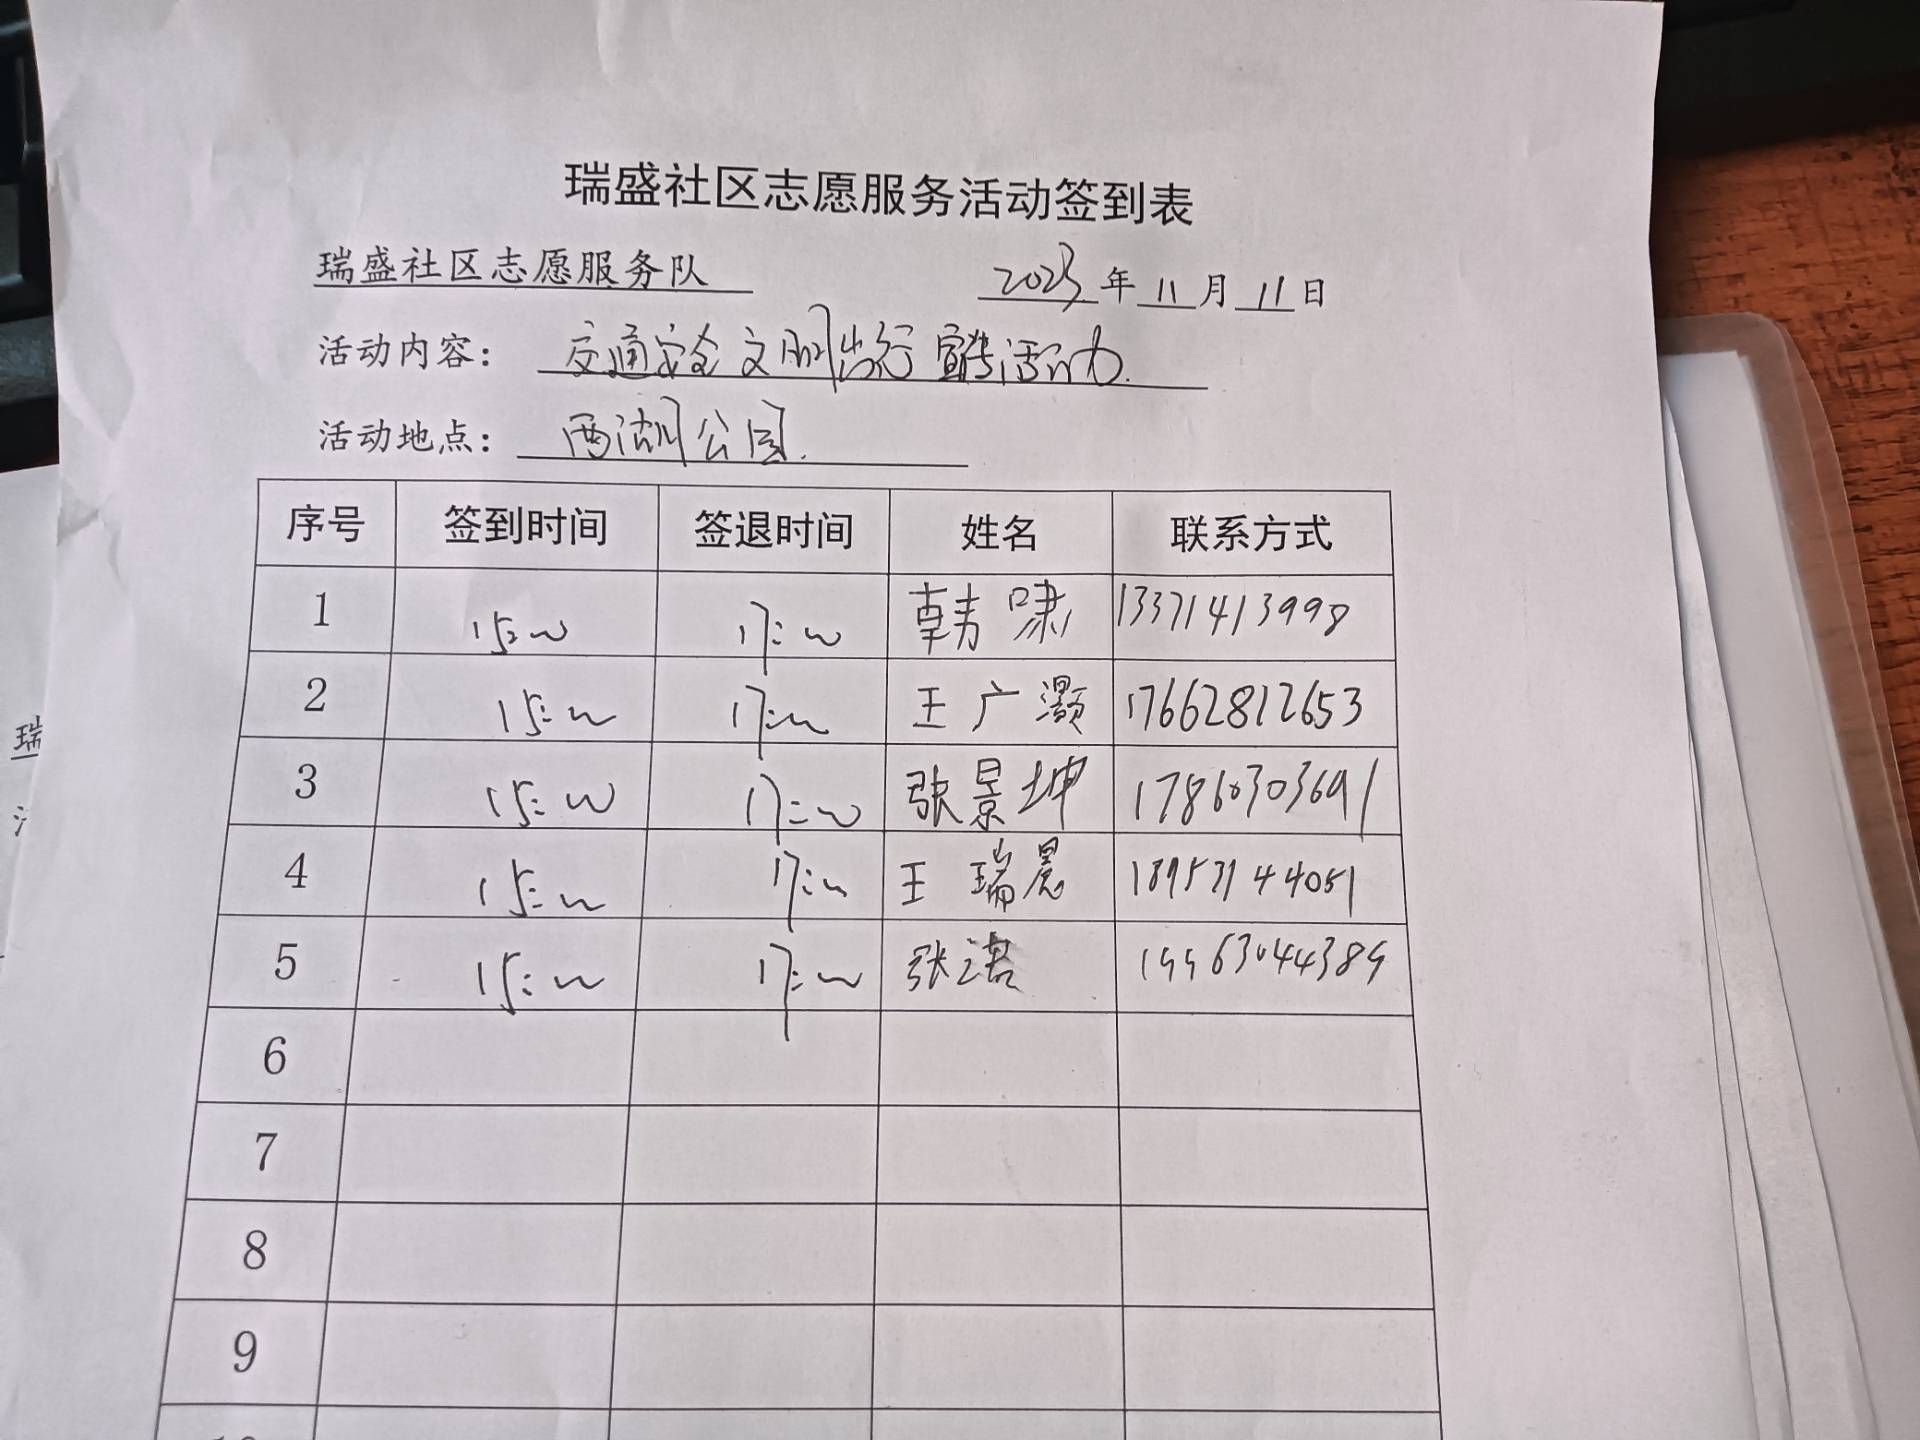 瑞盛社区志愿服务活动签到表
瑞盛社区志愿服务队 2023年11月11日
活动内容： 交通安全文明出行宣传活动.
活动地点： 西湖公园.
序号 签到时间 签退时间 姓名 联系方式
1 15:00 17:00 韩啸 13371413998
2 15:00 17:00 王广灏 17662812653
3 15:00 17:00 张景坤 17860303691
4 15:00 17:00 王瑞晨 18953144051
5 15:00 17:00 张诺 19963044389
6
7
8
9
瑞